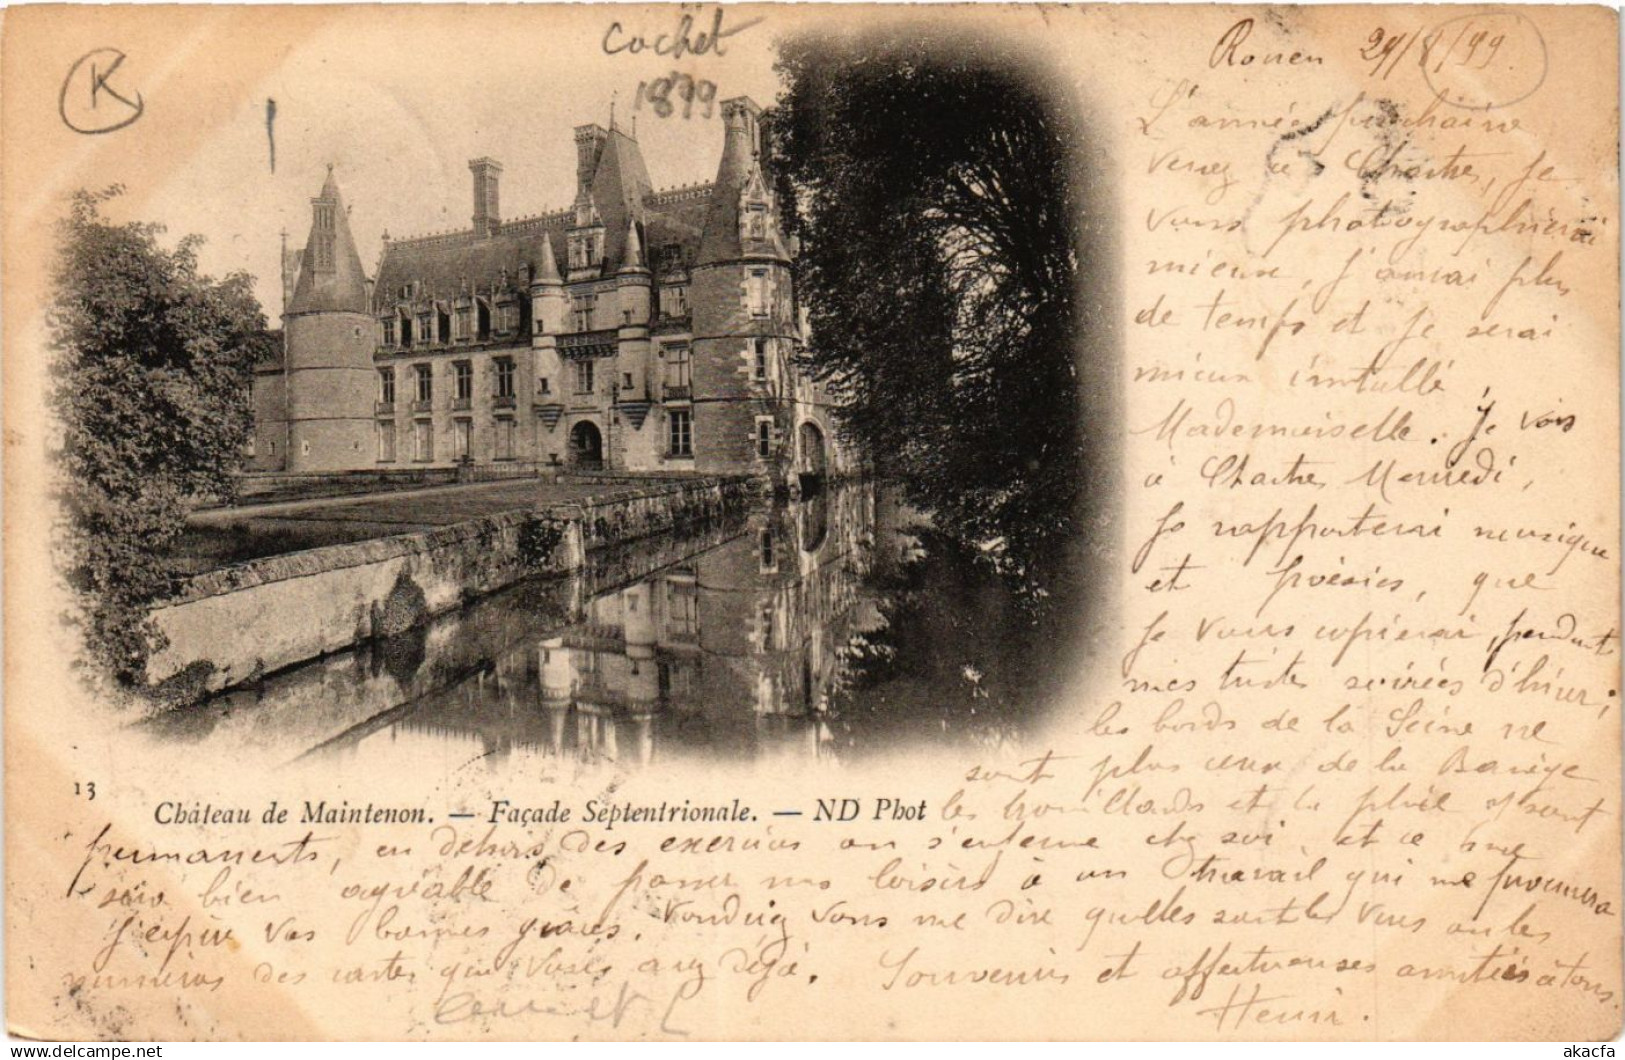 Cachet
1899
K
Rouen 29/8/99
L'année prochaine
venez à Chartres, je
vous photographierai
mieux, j'aurai plus
de temps et je serai
mieux installé
Mademoiselle. Je vais
à Chartres Mercredi,
je rapporterai musique
et poésies, que
je vous copierai, pendant
mes tristes soirées d'hiver;
les bords de la Seine ne
sont plus ceux de de la
les brouillards et la pluie y sont
permanents, en dehors des exercices on s'enferme chez soi, et ce me
sera bien agréable de passer mes loisirs à un travail qui me procurera
j'espère vos bonnes grâces. Voudriez vous me dire quelles sont les vues ou les
numéros des cartes que vous avez déjà. Souvenirs et affectueuses amitiés à tous.
Henri.
13
Château de Maintenon. — Façade Septentrionale. — ND Phot
akacfa